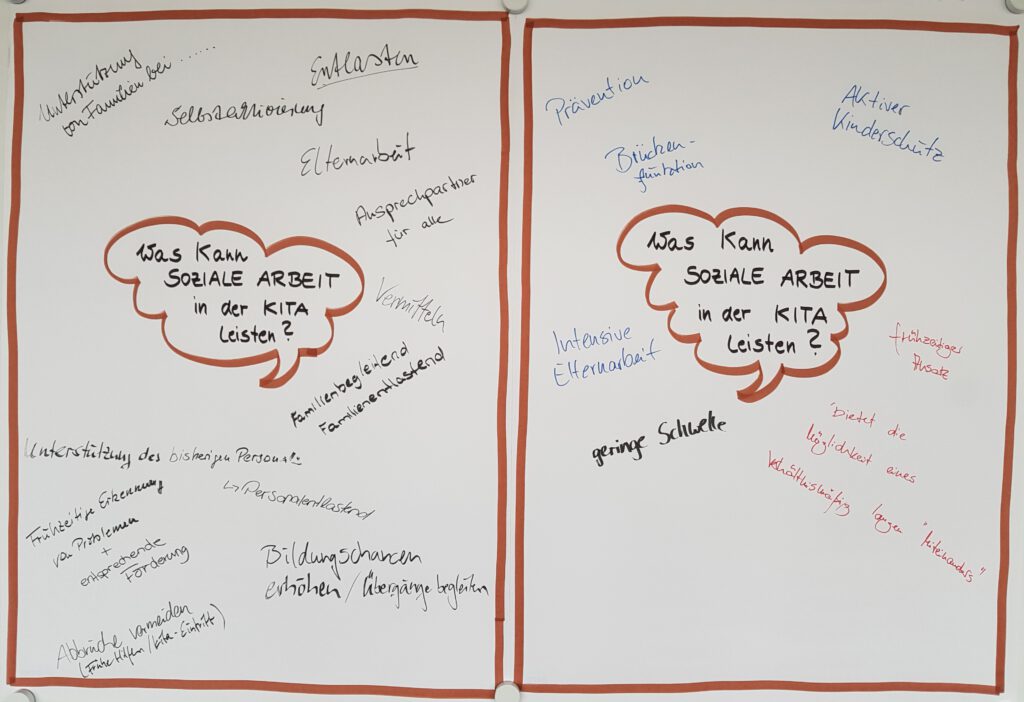 Unterstützung
von Familien bei ......
Entlasten
Selbstaktivierung
Elternarbeit
Ansprechpartner
für alle
Was Kann
SOZIALE ARBEIT
in der KITA
Leisten?
Vermitteln
Familienbegleitend
Familienentlastend
Unterstützung des bisherigen Personals
↳ Personalentlastend
Frühzeitige Erkennung
von Problemen
+
entsprechende
Förderung
Bildungschancen
erhöhen / Übergänge begleiten
Abbrüche vermeiden
(Frühe Hilfen / Kita-Eintritt)
Prävention
Aktiver
Kinderschutz
Brücken-
funktion
Was Kann
SOZIALE ARBEIT
in der KITA
Leisten?
Intensive
Elternarbeit
frühzeitiger
Ansatz
geringe Schwelle
"bietet die
Möglichkeit eines
verhältnismäßig langen "Miteinanders"